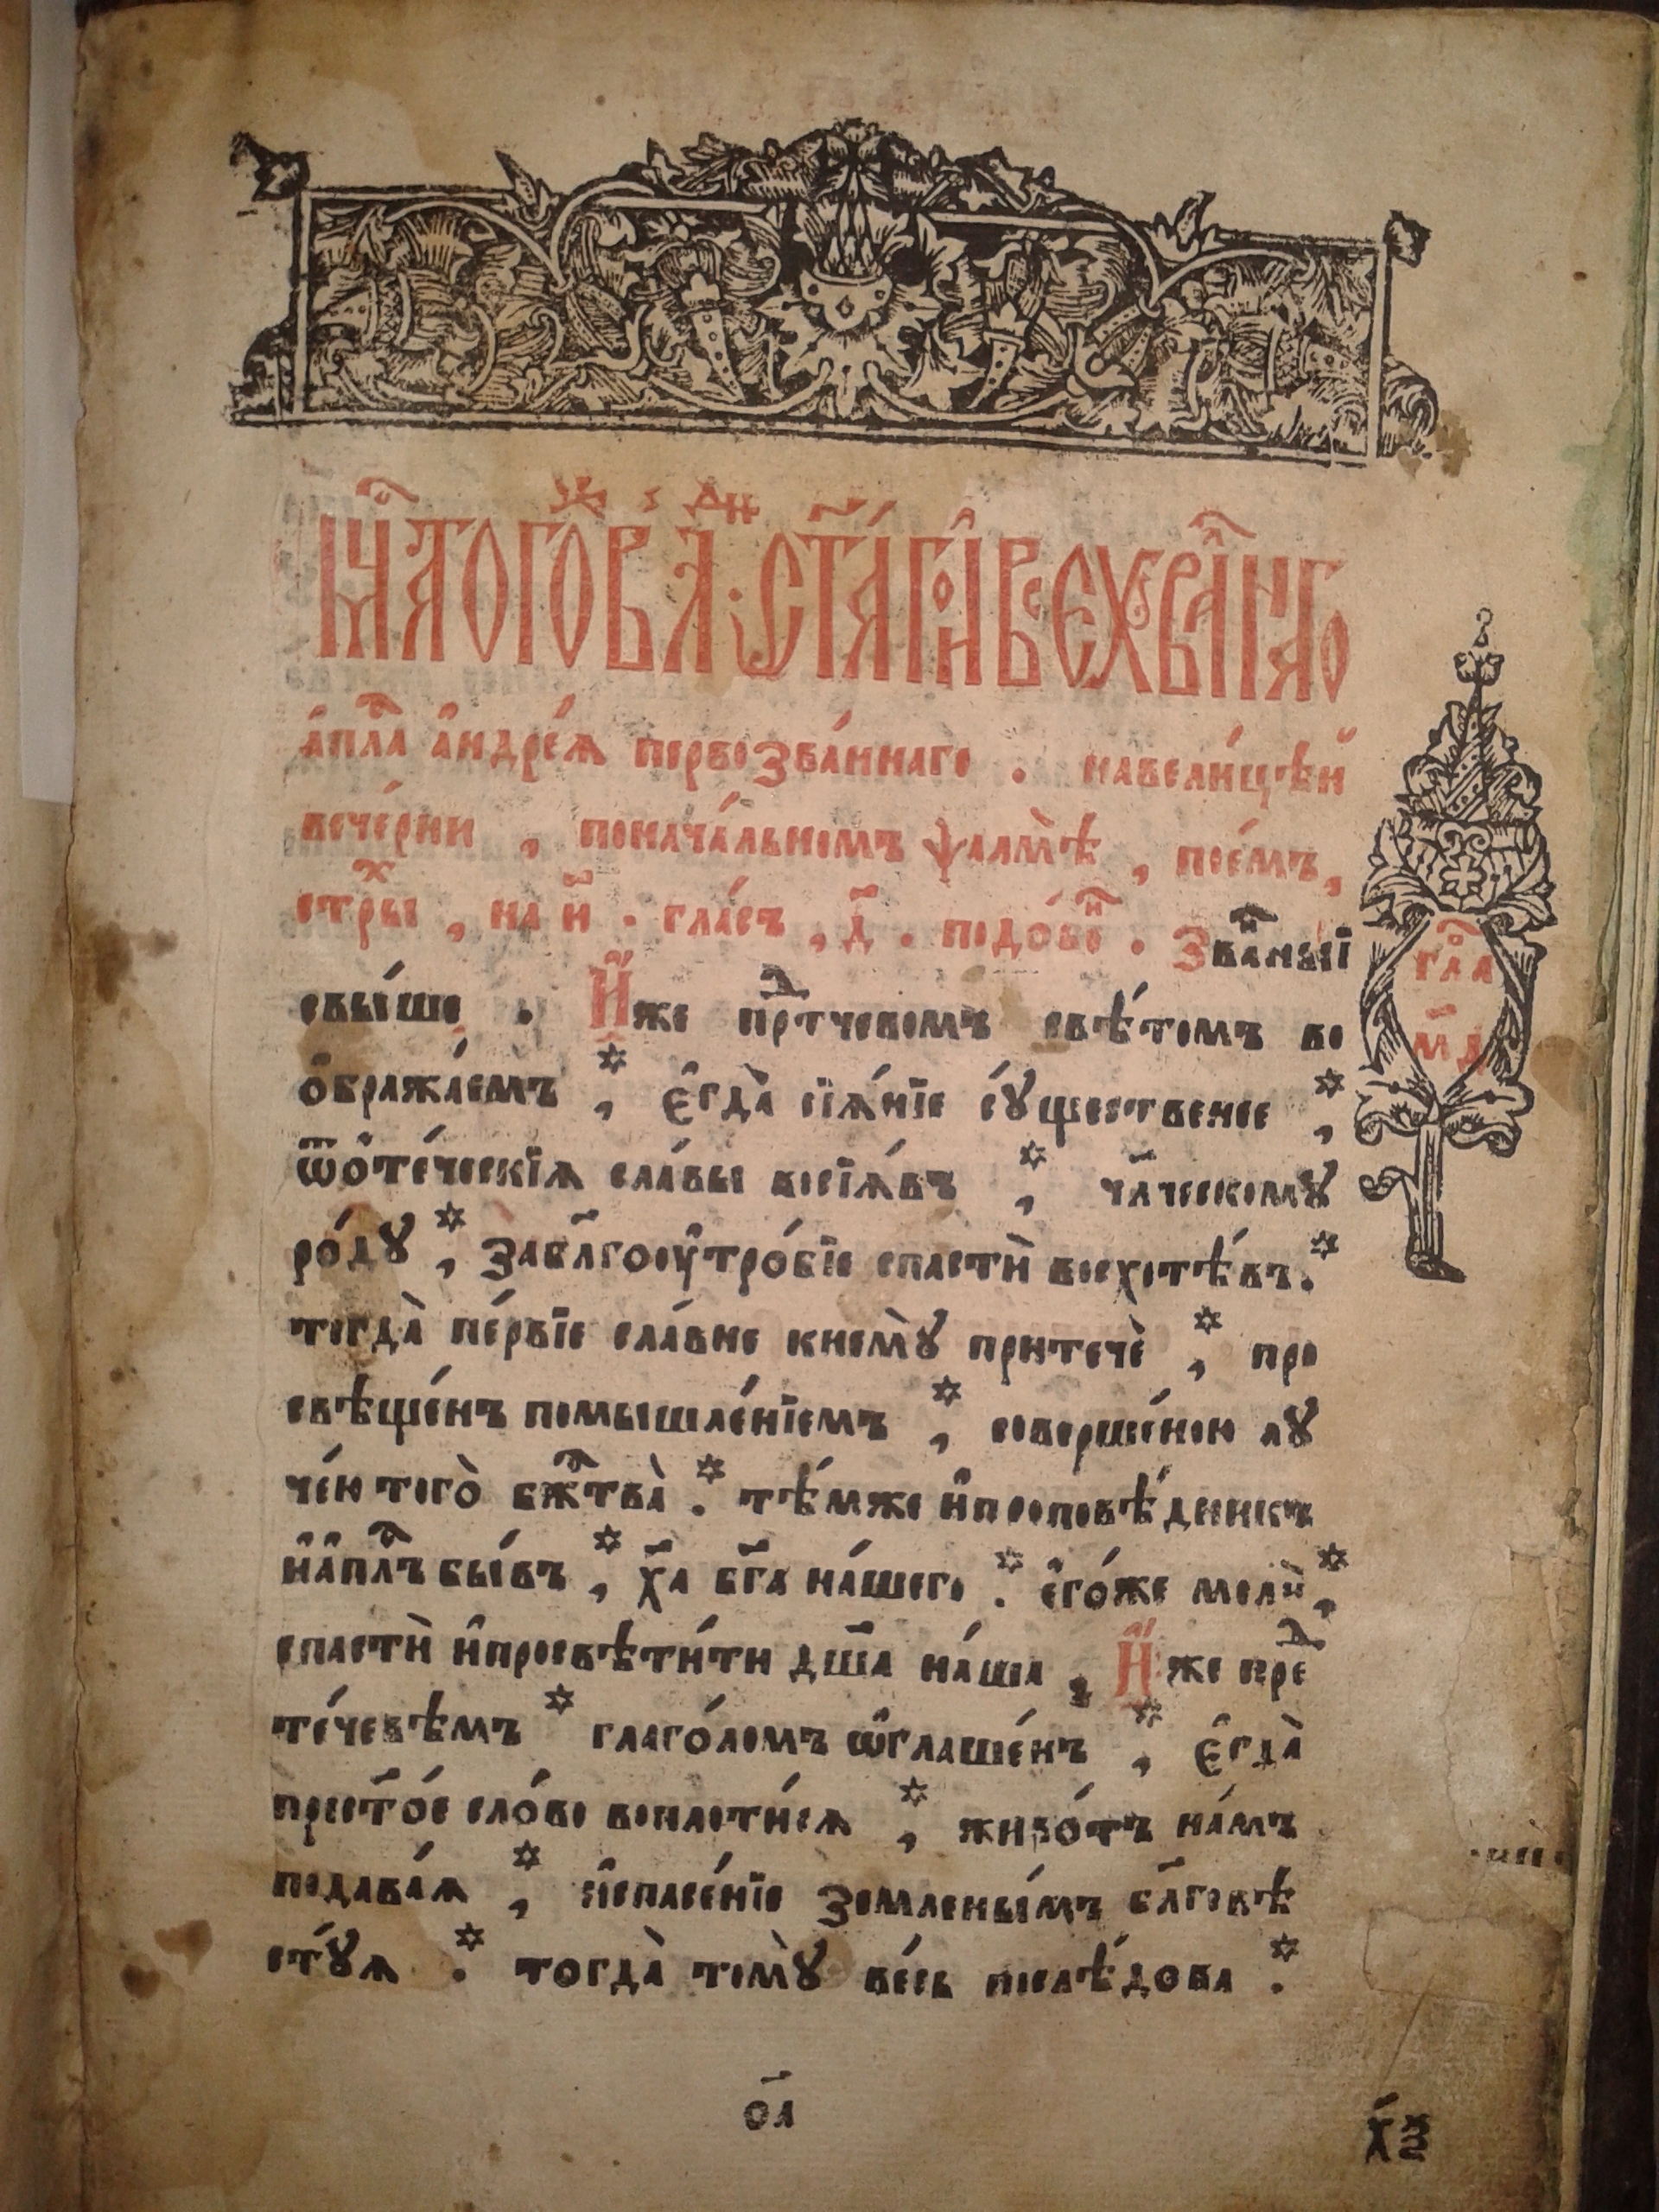 мⷭ҇ца того́же въ л҃ дн҃ь . ст҃а́гѡ и҆ всехва́лнагѡ
а҆пⷭ҇ла а҆ндре́ѧ первозва́ннаго . навели́цѣй
вече́рни , понача́льномъ ѱалмѣ̀ , пое́мъ ,
стⷯры , на и҃ . гла́съ , д҃ . подо́беⷩ . Зва́ныⷩ҇і
свы́ше . И҆́же прⷣтчевомъ свѣ́томъ во
ѻ҆бража́емъ , є҆гда̀ сїѧ́нїе сꙋ́щественое ,
ѿѻ҆те́ческїѧ сла́вы восїѧ́въ , чл҃ческомꙋ
ро́дꙋ , забл҃гоꙋтро́бїе спастѝ восхотѣ́въ .
тогда̀ пе́рвїе сла́вне кнемꙋ̀ притечѐ , про
свѣще́нъ помышле́нїемъ , соверше́ною лꙋ
че́ю того̀ бжⷭ҇тва̀ . тѣ́мже и҆проповѣ́дникъ
и҆а҆пⷭ҇лъ бы́въ , хⷭ҇а бг҃а на́шего . є҆го́же молѝ ,
спастѝ и҆просвѣти́ти дш҃а на́ша , И҆́же преⷣ
те́чевѣмъ глаго́ломъ ѡ҆глаше́нъ , є҆гда̀
прест҃о́е сло́во воплоти́сѧ , живо́тъ на́мъ
подава́ѧ , и҆спасе́нїе землены́мъ бл҃говѣ
ст́ꙋѧ . тогда̀ томꙋ̀ ве́сь послѣ́дова .
глⷭ҇а
м҃д
ол҃
х҃ѯ